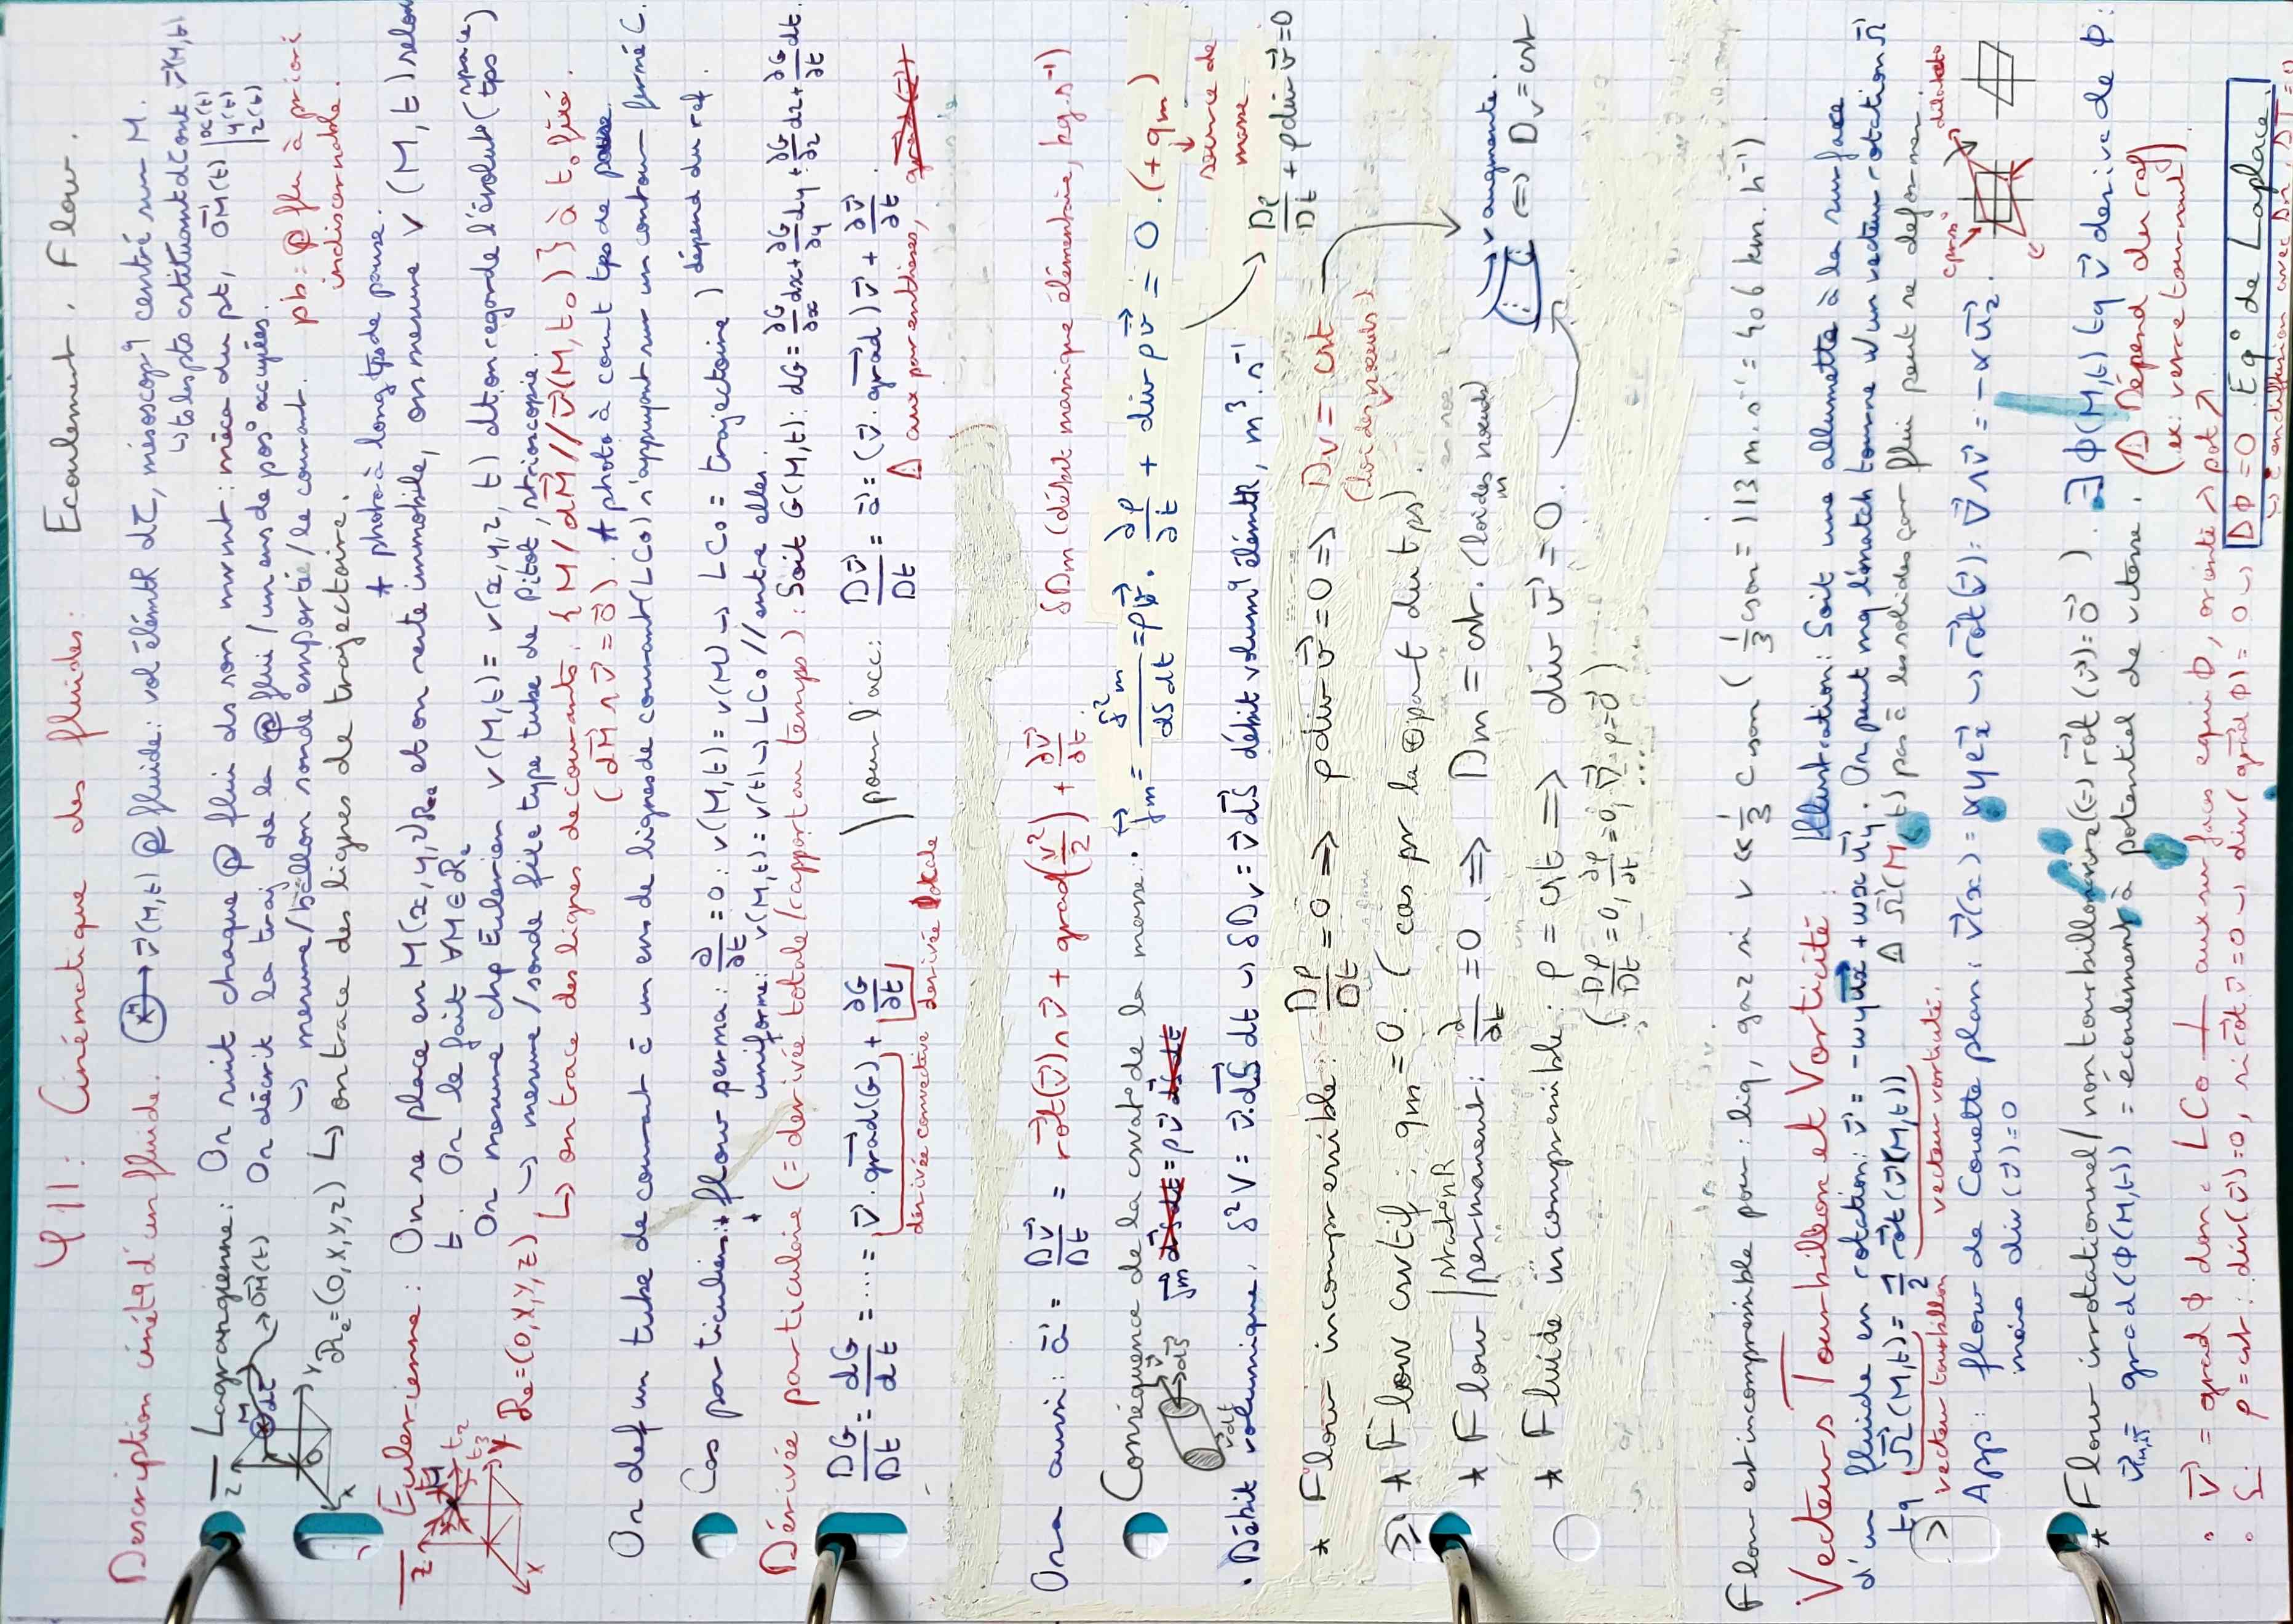 φ11: Cinématique des fluides: Ecoulement, Flow.
Description cinétq d'un fluide. → v⃗(M,t) @ fluide: vol élémtR dτ, mésoscopq centré sur M.
↳ ts les pts cstituant dτ ont v⃗(M,t)
Lagrangienne: On suit chaque @ flui ds son mvmt: méca du pt, OM⃗(t) |x(t) |y(t) |z(t)
On décrit la traj de la @ flui / un ens de pos° occupées.
↳ mesure/ballon sonde emporté/le courant. pb: @ flu à priori indiscernable.
R_e=(O,X,Y,Z) ↳ on trace des lignes de trajectoire.
* photo à long tps de pause.
Eulerienne: On se place en M(x,y,z)Ree et on reste immobile, on mesure v(M,t) selon
t. On le fait ∀M∈Re
On mesure chp Eulerien v(M,t)= v(x,y,z,t) dt on regarde l'évolut° (space/tps)
R_e=(O,X,Y,Z) ↳ mesure/sonde fixe type tube de Pitot, strioscopie.
↳ on trace des lignes de courants: {M/ dM⃗ // v⃗(M,t₀)} à t₀ fixé.
(dM⃗ ∧ v⃗ = 0⃗). * photo à court tps de pause.
On def un tube de courant c̄ un ens de lignes de courant (LCo) s'appuyant sur un contour fermé C.
Cas particuliers: * flow perma: ∂/∂t = 0: v(M,t) = v(M) ↳ LCo = trajectoire ) dépend du ref.
* uniforme: v(M,t) = v(t) ↳ LCo // entre elles.
Dérivée particulaire (= dérivée totale/rapport au temps): Soit G(M,t): dG = ∂G/∂x dx + ∂G/∂y dy + ∂G/∂z dz + ∂G/∂t dt.
DG/Dt = dG/dt = .... = v⃗.grad⃗(G) + ∂G/∂t ) pour l'acc: Dv⃗/Dt = a⃗ = (v⃗.grad⃗)v⃗ + ∂v⃗/∂t.
dérivée convective dérivée locale
Δ aux parenthèses,
On a aussi: a⃗ = Dv⃗/Dt = rot⃗(v⃗)∧v⃗ + grad(v²/2) + ∂v⃗/∂t.
δDm (débit massique élémentaire, kg.s⁻¹)
Conséquence de la csvat° de la masse: • j⃗m = δ²m/dSdt = ρv⃗. ∂ρ/∂t + div ρv⃗ = 0. (+ qm)
↓ source de masse
v⃗dt
• Débit volumique. δ²V = v⃗.dS⃗ dt ↳ δDv = v⃗ dS⃗ débit volumq élémtR, m³.s⁻¹
→ Dρ/Dt + ρ div v⃗ = 0
* Flow incompressible: Dρ/Dt = 0 ⇒ ρ div v⃗ = 0 ⇒ Dv = cst
(loi des nœuds)
* Flow csvtif: qm = 0. (cas pr la plupart du tps).
* Flow |statonR |permanent: ∂/∂t = 0 ⇒ Dm = cst. (loi des nœuds m)
v augmente. ⇔ Dv = cst
* Fluide incompressible: ρ = cst ⇒ div v⃗ = 0.
(Dρ/Dt = 0, ∂ρ/∂t = 0, ∇⃗ρ = 0⃗)
....
Flow est incompressible pour: liq, gaz si v ≪ 1/3 c son (1/3 cson = 113 m.s⁻¹ = 406 km.h⁻¹)
Vecteurs Tourbillon et Vorticité: Illustration: Soit une allumette à la surface
d'un fluide en rotation: v⃗ = -ωy u⃗x + ωx u⃗y. On peut mq l'ématch tourne w/ un vecteur rotation Ω⃗
tq Ω⃗(M,t) = 1/2 rot⃗(v⃗(M,t)) Δ Ω⃗(M,t) pas c̄ les solides car flui peut se déformer.
vecteur tourbillon vecteur vorticité.
App: flow de Couette plan: v⃗(x) = αy e⃗x ↳ rot⃗(v⃗) = ∇⃗∧v⃗ = -α u⃗z.
mais div(v⃗) = 0
* Flow irrotationnel / non tourbillonnaire (↔ rot⃗(v⃗) = 0⃗). ∃ φ(M,t) tq v⃗ dérive de φ:
grad(φ(M,t)) = écoulement à potentiel de vitesse. (Δ Dépend du ref)
(ex: verre tournant)
• v⃗ = grad φ donc LCo ⊥ aux surfaces equi φ, orienté ↳ pot ↗
• Si ρ = cst: div(v⃗) = 0, si rot⃗ v⃗ = 0 ↳ div(grad⃗ φ) = 0 ↳ Δφ = 0 Eq° de Laplace.